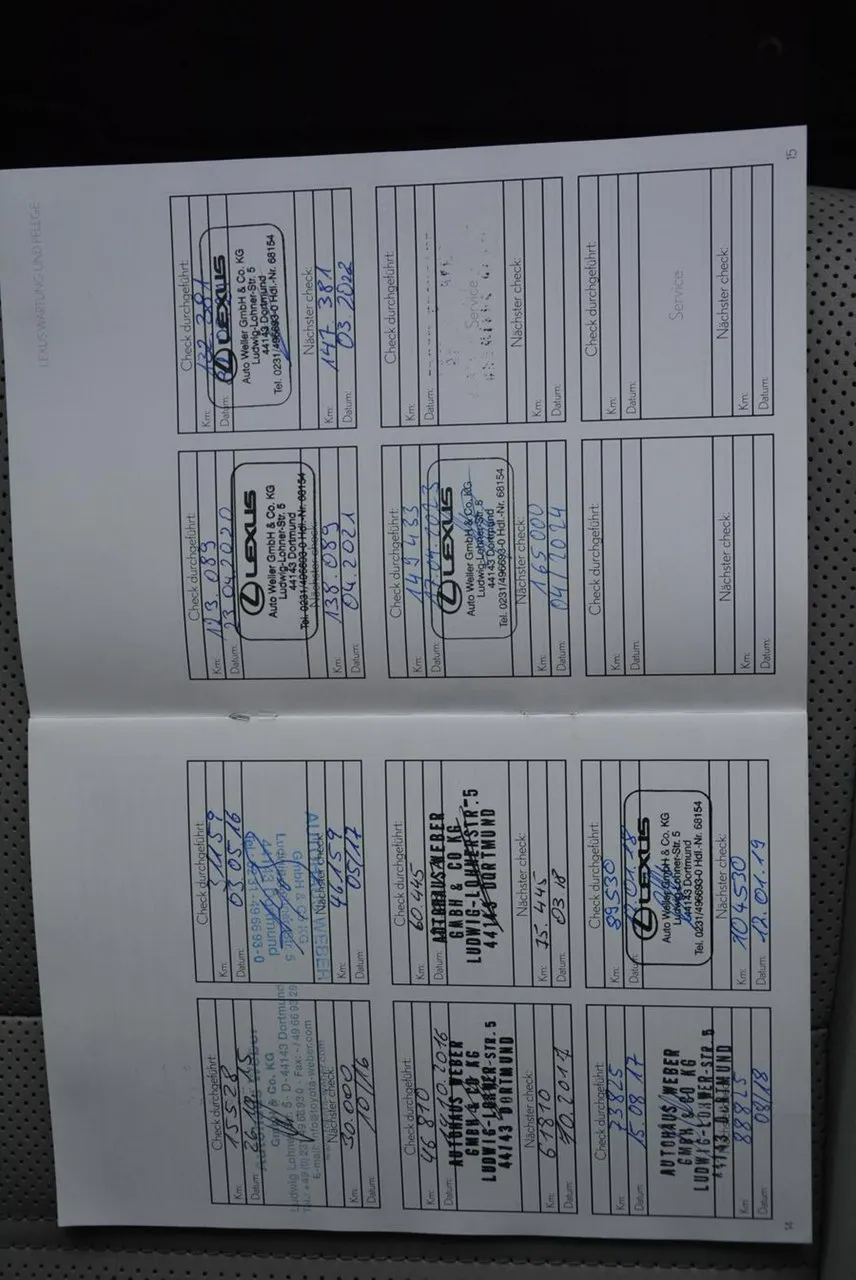 Check durchgeführt:
Km: 15528
Datum: 26.10.15
GmbH & Co. KG
Ludwig Lohner Str. 5 · D-44143 Dortmund
Nächster check:
Km: 30.000
Datum: 10/16
Check durchgeführt:
Km: 31159
Datum: 03 05 16
AUTOHAUS WEBER
GMBH & CO KG
Nächster check:
Km: 46159
Datum: 05/17
Check durchgeführt:
Km: 46 810
Datum: 14.10.2016
AUTOHAUS WEBER
GMBH & CO KG
LUDWIG-LOHNER-STR. 5
44143 DORTMUND
Nächster check:
Km: 61810
Datum: 10.2017
Check durchgeführt:
Km: 60.445
Datum:
AUTOHAUS WEBER
GMBH & CO KG
LUDWIG-LOHNERSTR. 5
44143 DORTMUND
Nächster check:
Km: 75.445
Datum: 03 18
Check durchgeführt:
Km: 73825
Datum: 15.08.17
AUTOHAUS WEBER
GMBH & CO KG
LUDWIG-LOHNER-STR. 5
44143 DORTMUND
Km: 88825
Datum: 08/18
Check durchgeführt:
Km: 89530
Datum: 01.18
LEXUS
Auto Weller GmbH & Co. KG
Ludwig-Lohner-Str. 5
44143 Dortmund
Tel. 0231/496693-0 Hdl.-Nr. 68154
Nächster check:
Km: 104530
Datum: 12.01.19
14
LEXUS WARTUNG UND PFLEGE
Check durchgeführt:
Km: 123.089
Datum: 23.04.2020
LEXUS
Auto Weller GmbH & Co. KG
Ludwig-Lohner-Str. 5
44143 Dortmund
Tel. 0231/496693-0 Hdl.-Nr. 68154
Nächster check:
Km: 138.089
Datum: 04.2021
Check durchgeführt:
Km: 132 381
Datum:
LEXUS
Auto Weller GmbH & Co. KG
Ludwig-Lohner-Str. 5
44143 Dortmund
Tel. 0231/496693-0 Hdl.-Nr. 68154
Nächster check:
Km: 147 381
Datum: 03 2022
Check durchgeführt:
Km: 149 433
Datum: 17.04.2023
LEXUS
Auto Weller GmbH & Co. KG
Ludwig-Lohner-Str. 5
44143 Dortmund
Tel. 0231/496693-0 Hdl.-Nr. 68154
Nächster check:
Km: 165 000
Datum: 04/2024
Check durchgeführt:
Km:
Datum:
Service
Nächster check:
Km:
Datum:
Check durchgeführt:
Km:
Datum:
Nächster check:
Km:
Datum:
Check durchgeführt:
Km:
Datum:
Service
Nächster check:
Km:
Datum:
15